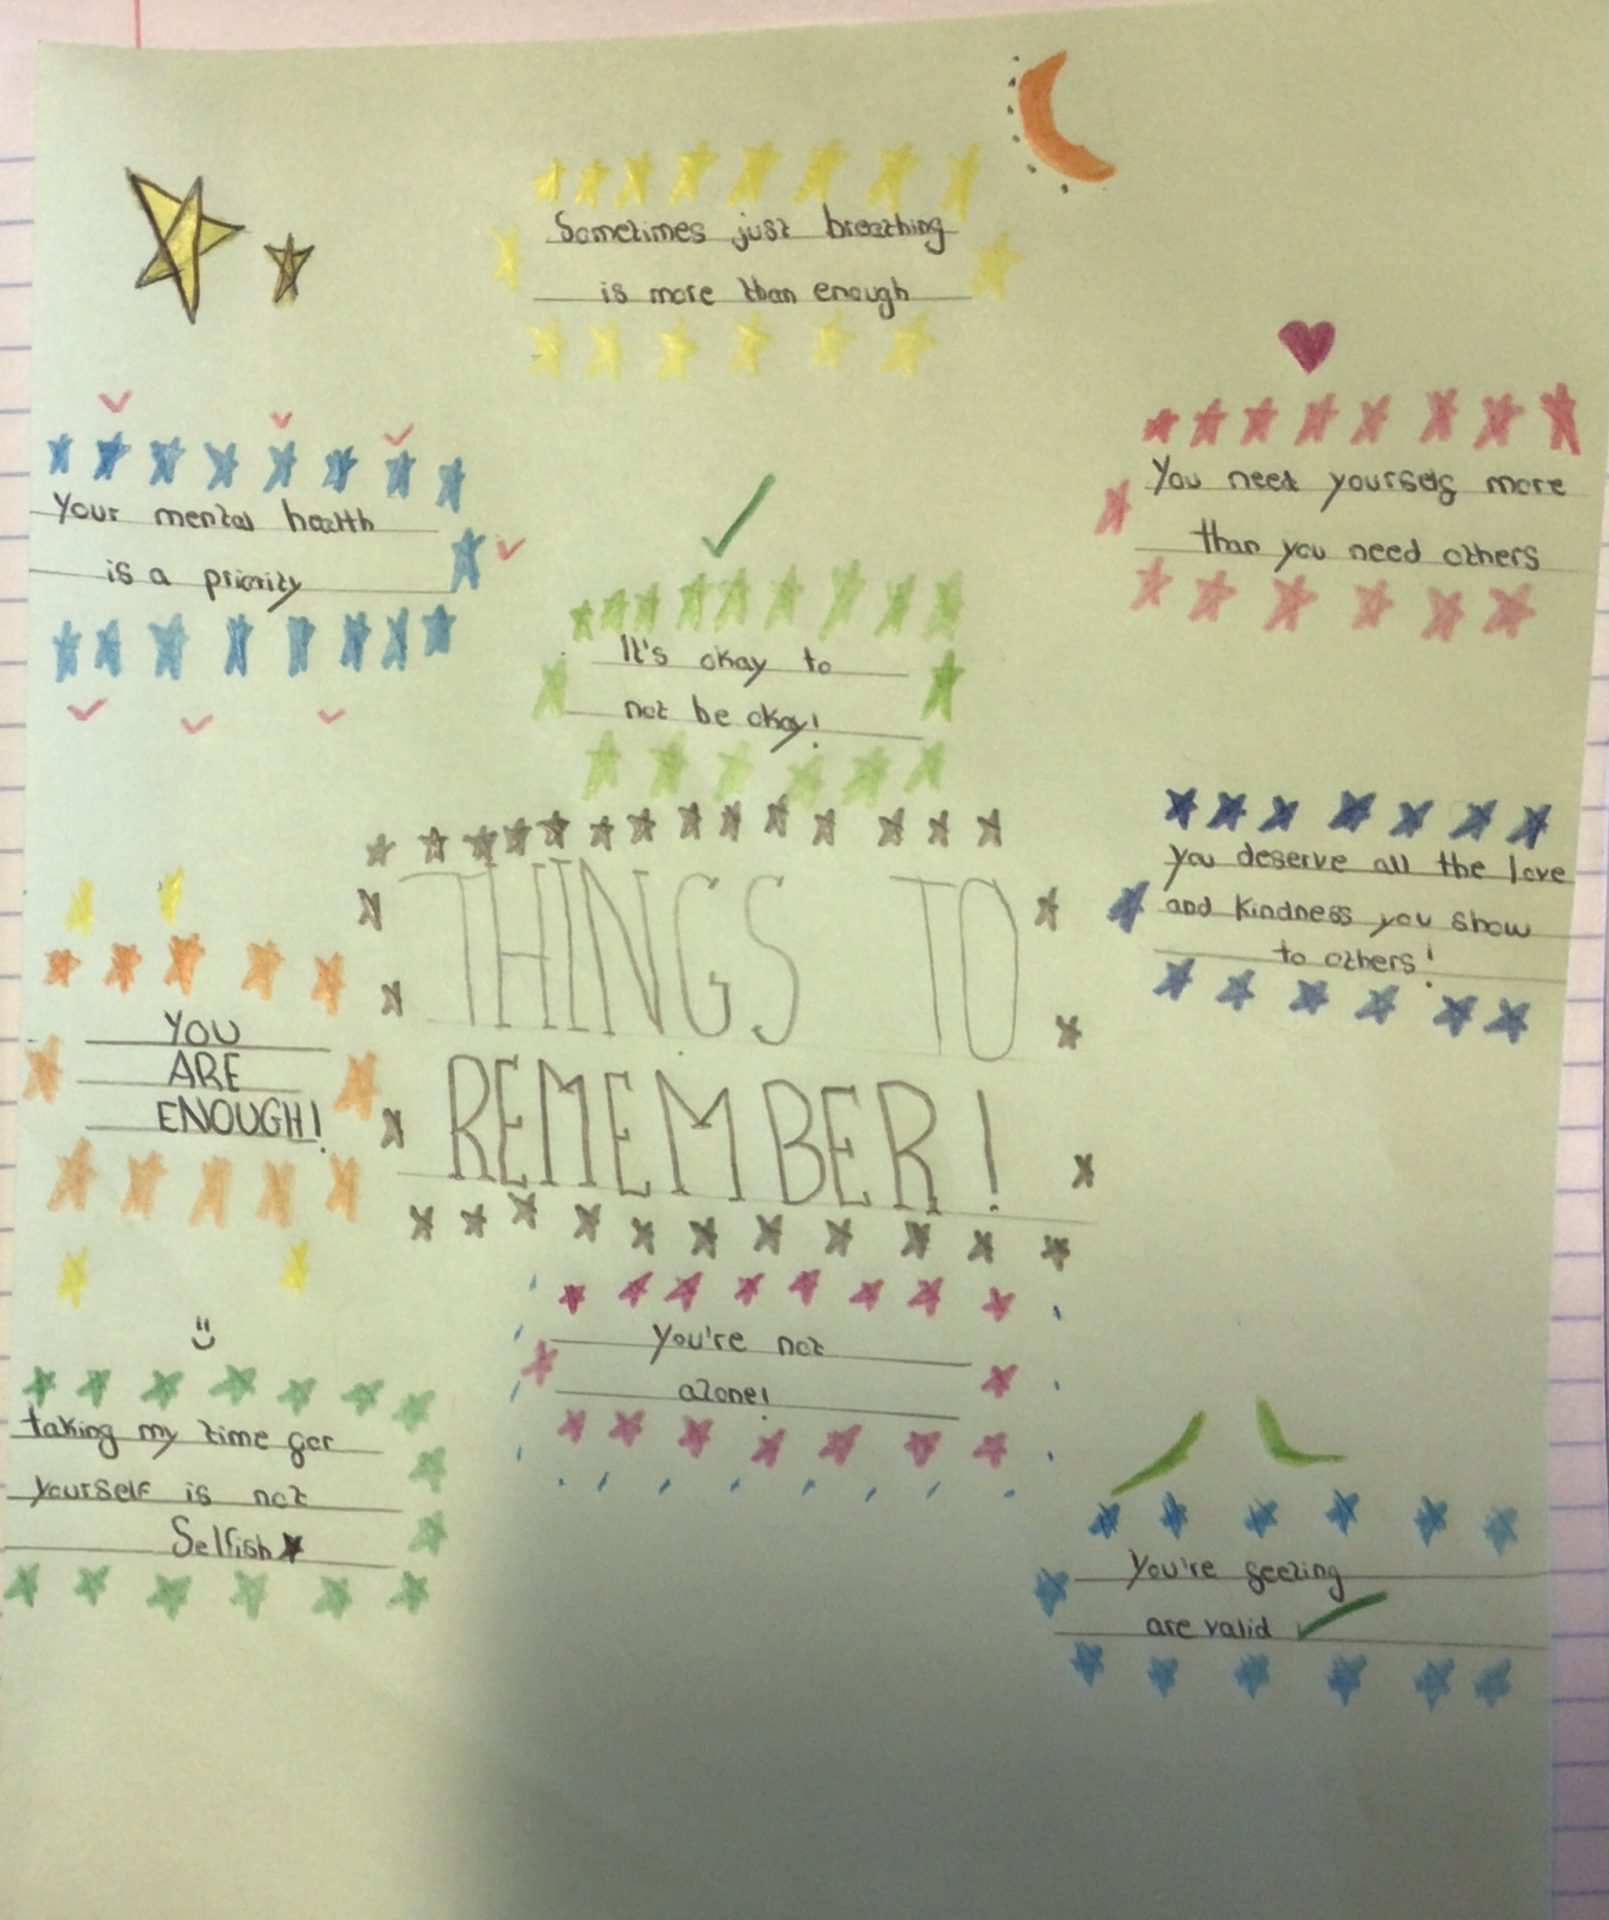 Sometimes just breathing
is more than enough
Your mental health
is a priority
You need yourself more
than you need others
It's okay to
not be okay!
you deserve all the love
and kindness you show
to others!
THINGS TO
REMEMBER!
YOU
ARE
ENOUGH!
You're not
alone!
taking my time for
yourself is not
Selfish
You're feeling
are valid